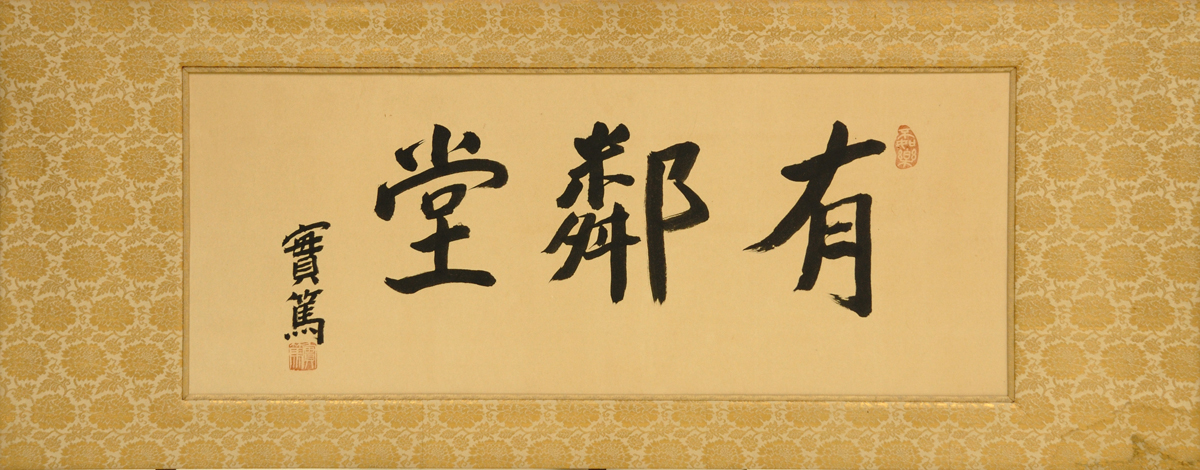 有鄰堂
實篤